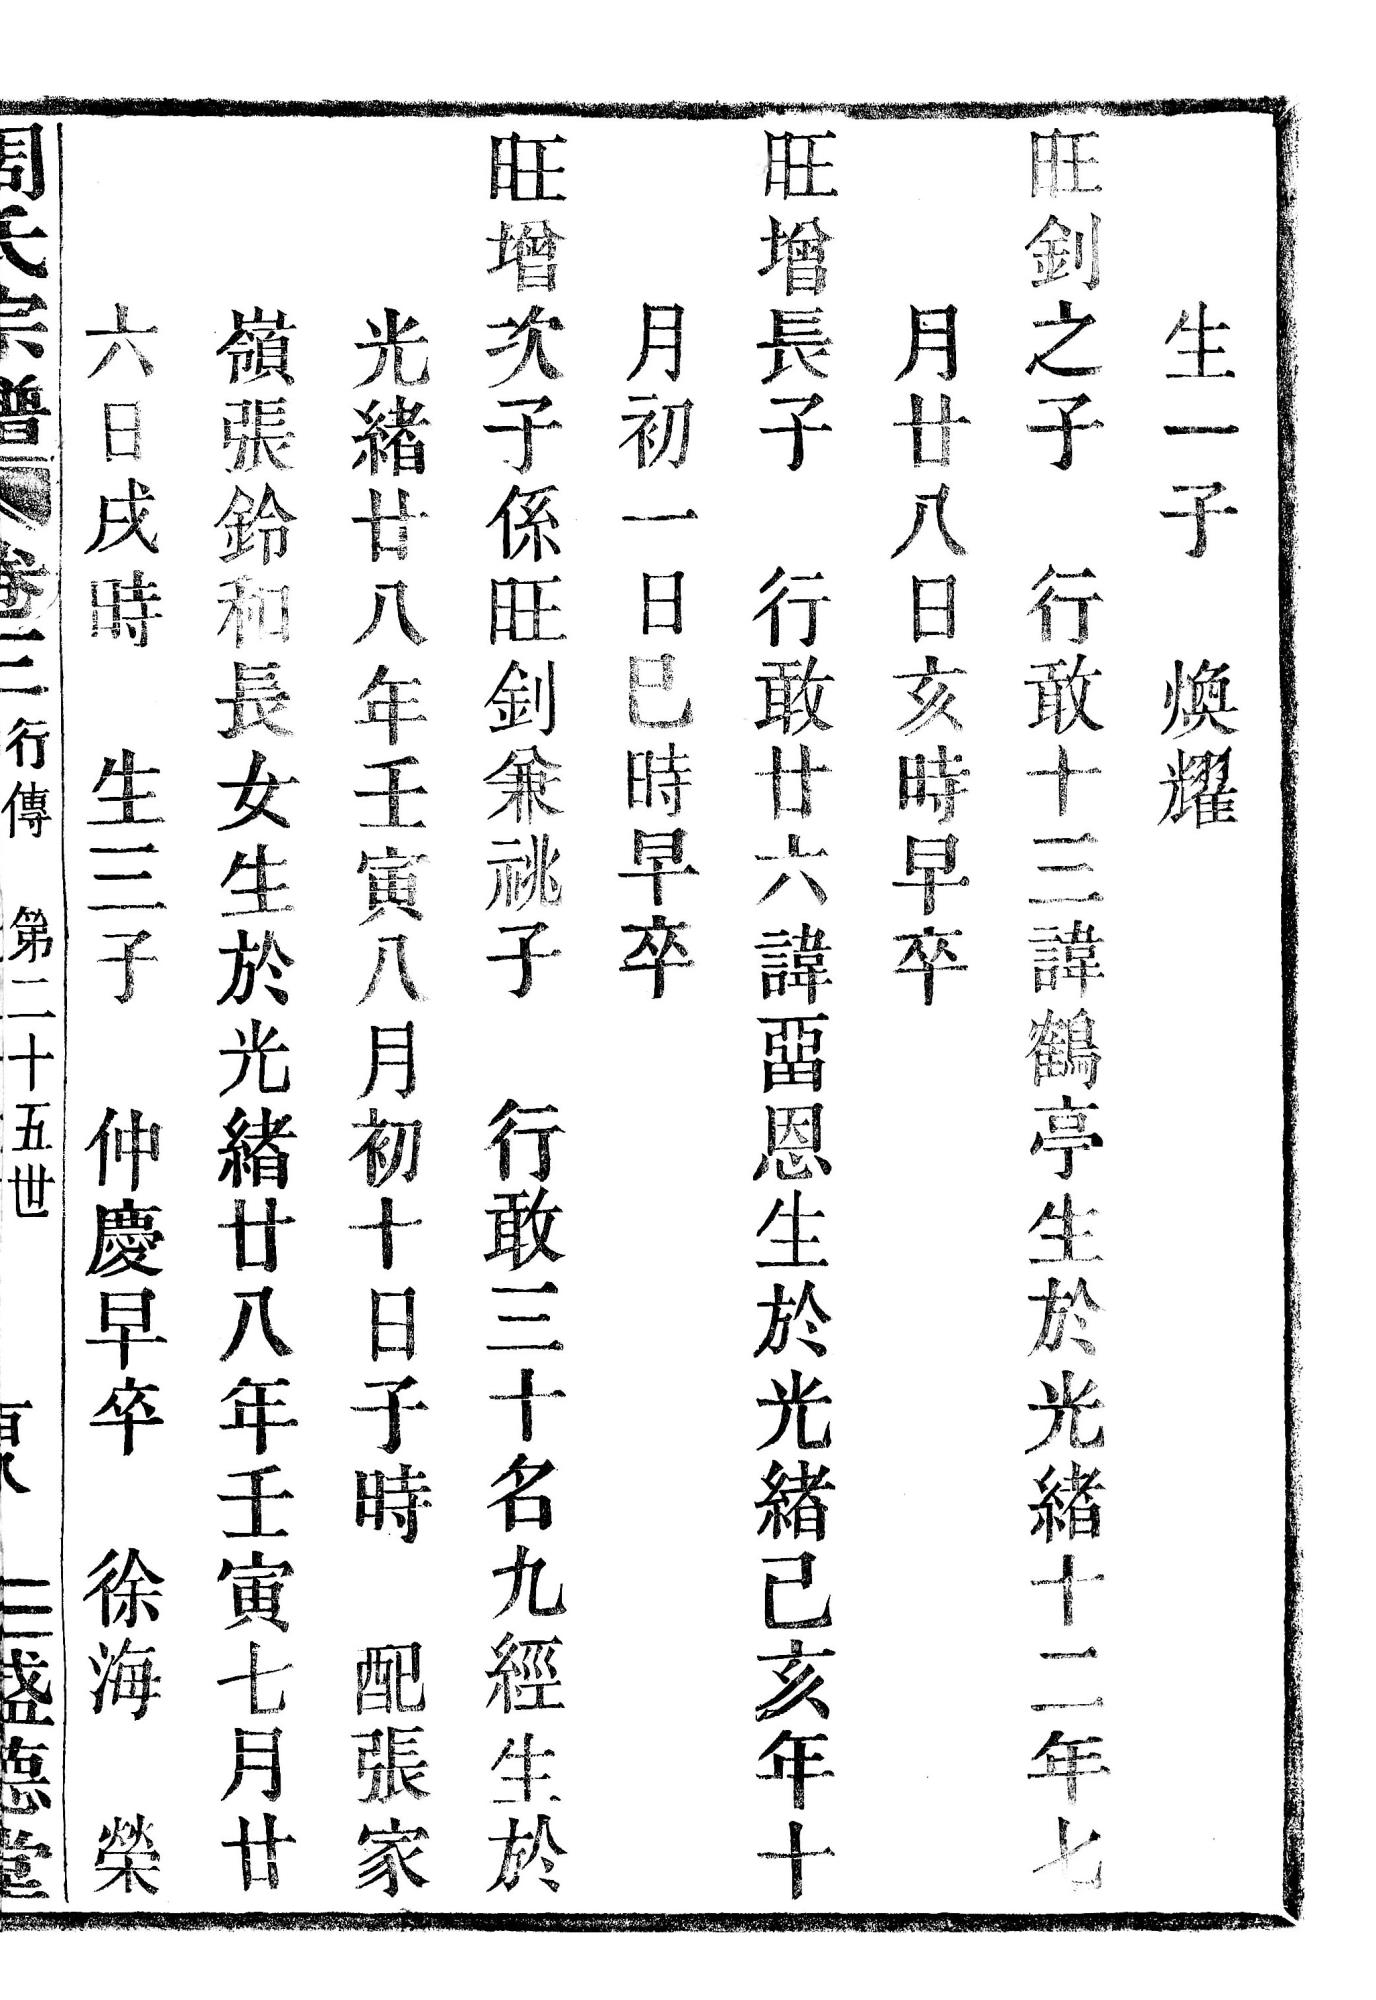 生一子　煥耀
旺釗之子　行敢十三諱鶴亭生於光緒十二年七
月廿八日亥時早卒
旺增長子　行敢廿六諱畱恩生於光緒己亥年十
月初一日巳時早卒
旺增次子係旺釗兼祧子　行敢三十名九經生於
光緒廿八年壬寅八月初十日子時　配張家
嶺張鈴和長女生於光緒廿八年壬寅七月廿
六日戌時　生三子　仲慶早卒　徐海　榮
周氏宗譜　卷三　行傳　第二十五世　三盛德堂